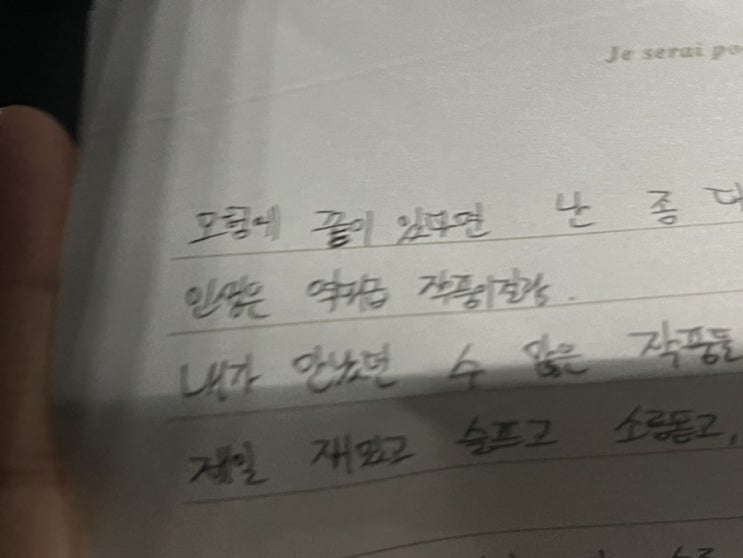 Je serai po
모험에 끝이 있다면 난 좀 다
인생은 역대급 작품이잖아.
내가 만났던 수 많은 작품들
제일 재밌고 슬프고 소름돋고,